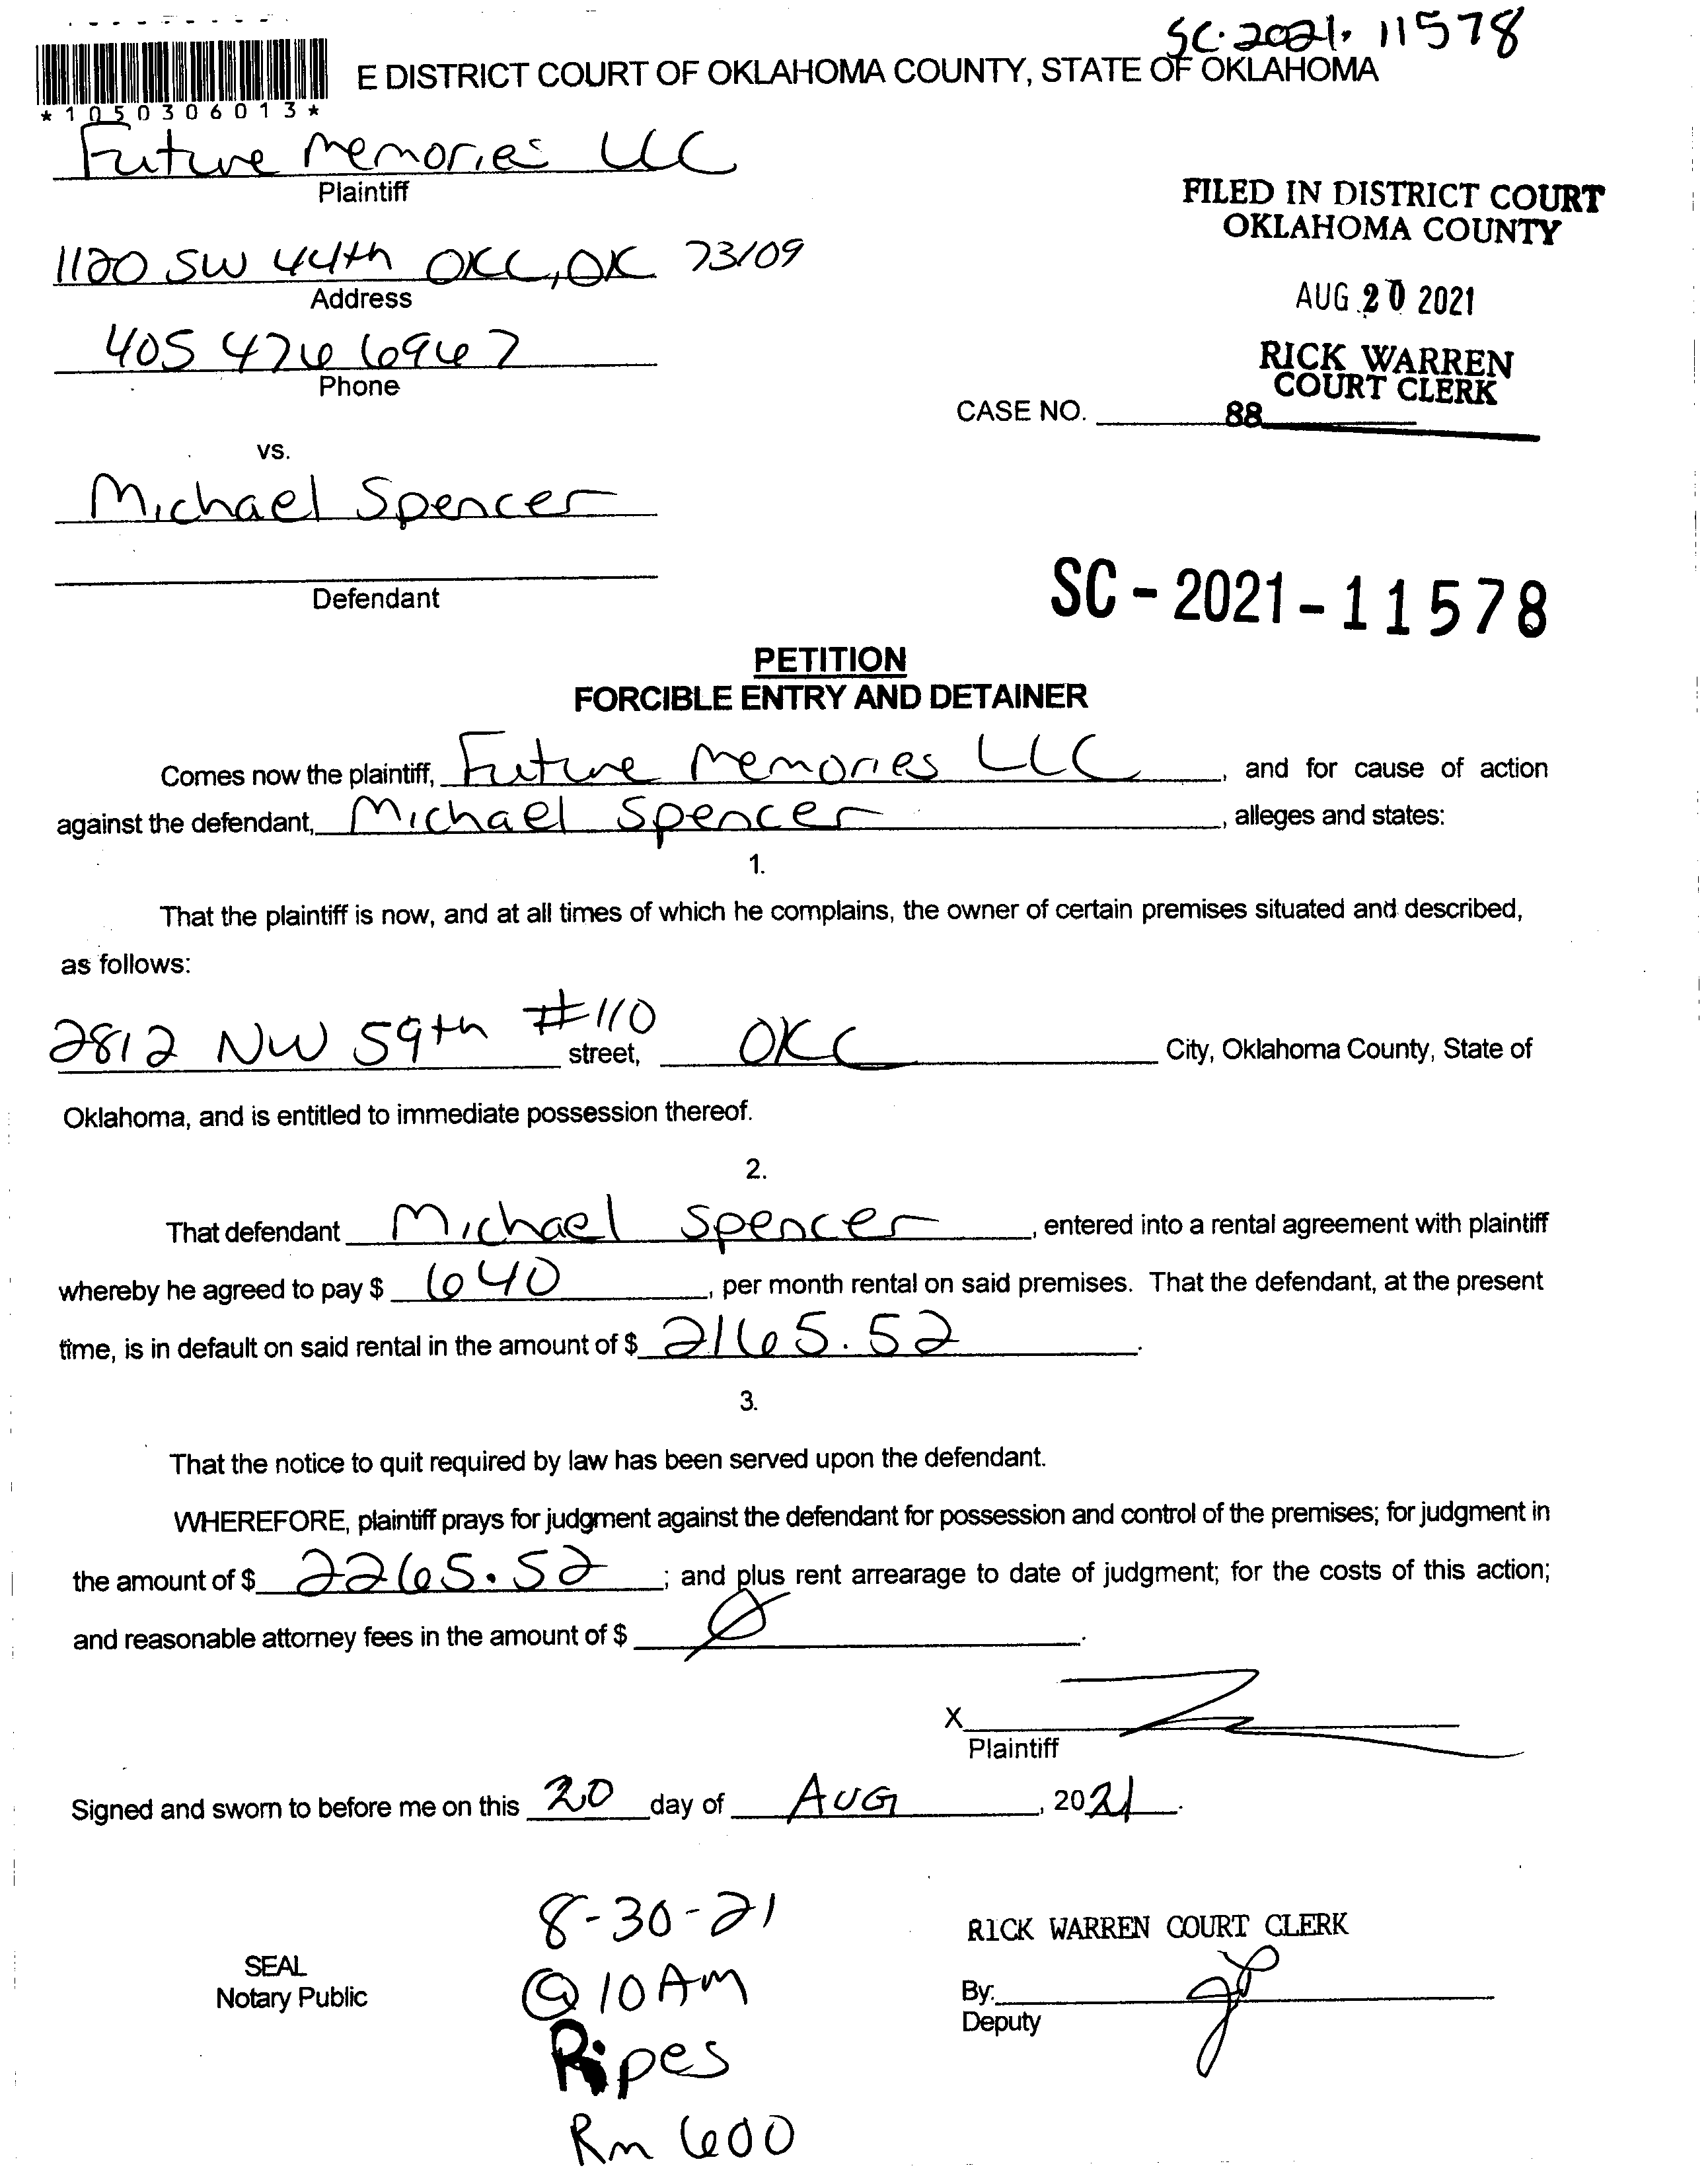 SC-2021-11578
E DISTRICT COURT OF OKLAHOMA COUNTY, STATE OF OKLAHOMA
*1050306013*
Future Memories LLC
Plaintiff
1120 SW 44th OKC, OK 73109
Address
405 476 6967
Phone
FILED IN DISTRICT COURT
OKLAHOMA COUNTY
AUG 20 2021
RICK WARREN
COURT CLERK
CASE NO. 88
vs.
Michael Spencer
Defendant
SC-2021-11578
PETITION
FORCIBLE ENTRY AND DETAINER
Comes now the plaintiff, Future Memories LLC, and for cause of action
against the defendant, Michael Spencer, alleges and states:
1.
That the plaintiff is now, and at all times of which he complains, the owner of certain premises situated and described,
as follows:
2812 NW 59th #110 street, OKC City, Oklahoma County, State of
Oklahoma, and is entitled to immediate possession thereof.
2.
That defendant Michael Spencer, entered into a rental agreement with plaintiff
whereby he agreed to pay $ 640, per month rental on said premises. That the defendant, at the present
time, is in default on said rental in the amount of $ 2165.52.
3.
That the notice to quit required by law has been served upon the defendant.
WHEREFORE, plaintiff prays for judgment against the defendant for possession and control of the premises; for judgment in
the amount of $ 2265.52; and plus rent arrearage to date of judgment; for the costs of this action;
and reasonable attorney fees in the amount of $ Ø.
X
Plaintiff
Signed and sworn to before me on this 20 day of AUG, 2021.
8-30-21
@ 10 AM
Ripes
Rm 600
SEAL
Notary Public
RICK WARREN COURT CLERK
By:
Deputy